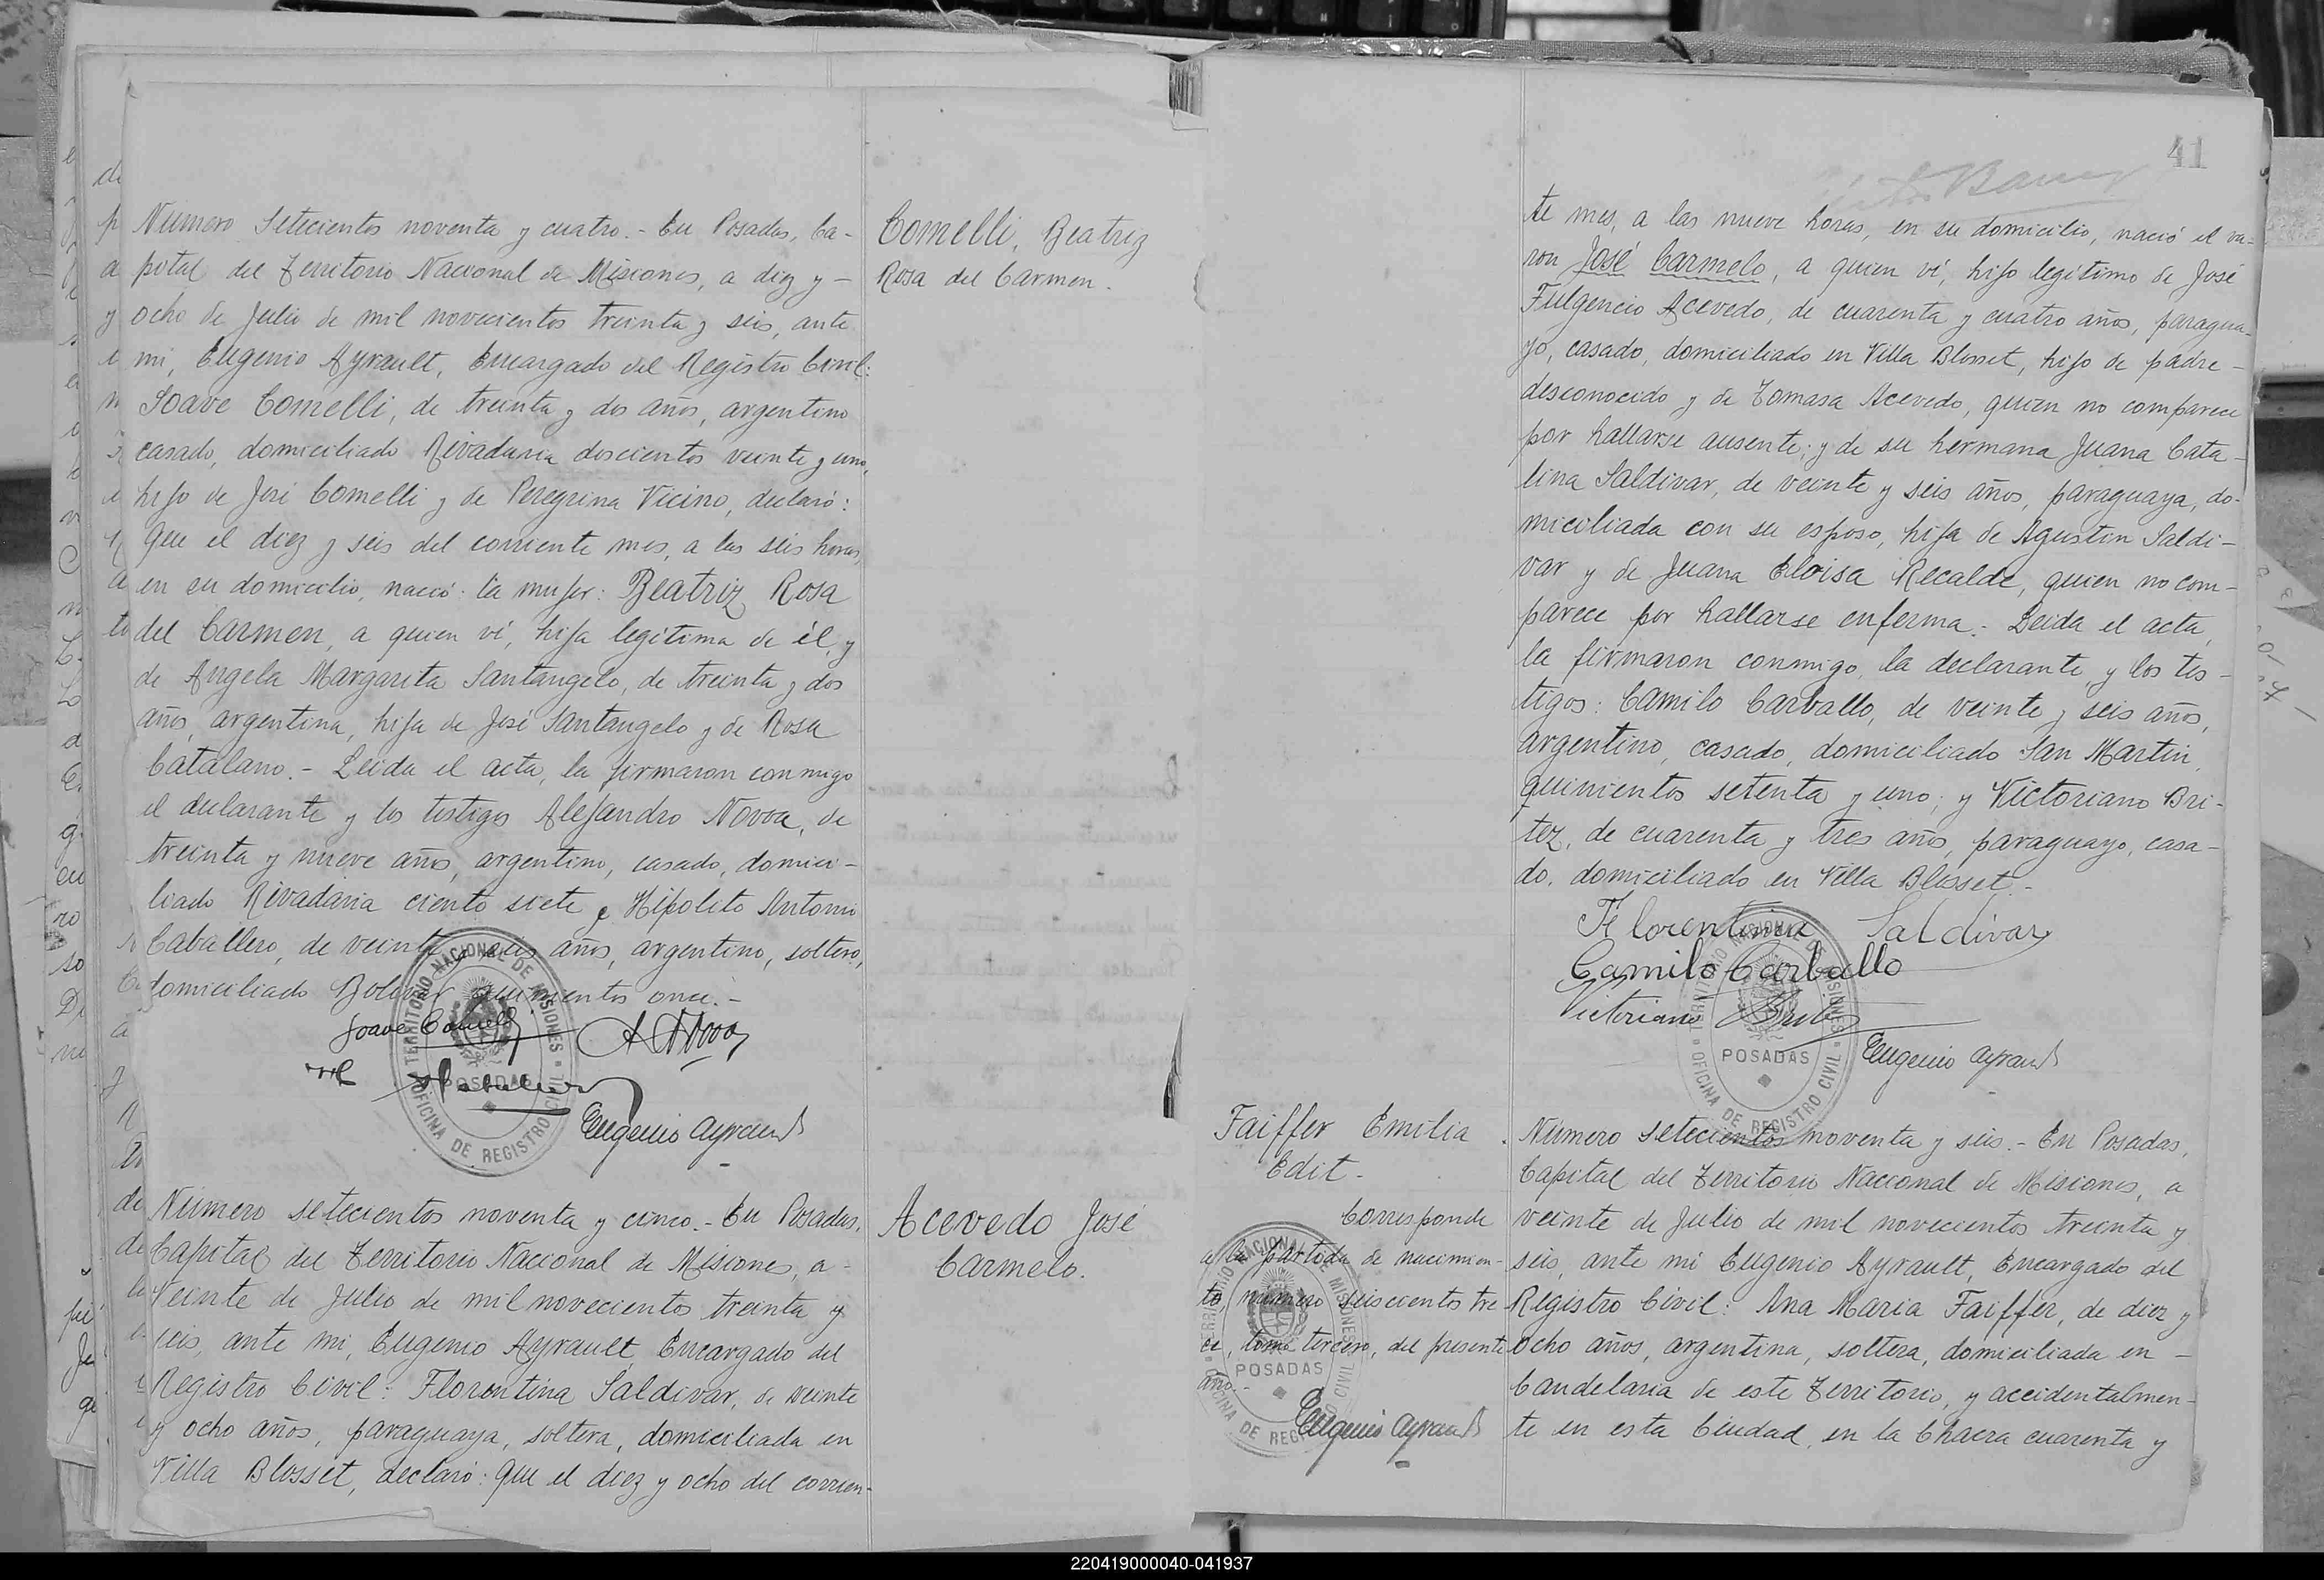 Número Setecientos noventa y cuatro.- En Posadas, Ca-
pital del Territorio Nacional de Misiones, a diez y -
ocho de Julio de mil novecientos treinta y seis, ante
mi, Eugenio Ayrault, Encargado del Registro Civil:
Soave Comelli, de treinta y dos años, argentino
casado, domiciliado Rivadavia doscientos veinte y uno,
hijo de José Comelli y de Peregrina Vicino, declaró:
Que el diez y seis del corriente mes, a las seis horas,
en su domicilio, nació: la mujer: Beatriz Rosa
del Carmen, a quien ví, hija legítima de él, y
de Angela Margarita Santangelo, de treinta y dos
años, argentina, hija de José Santangelo y de Rosa
Catalano.- Leida el acta, la firmaron conmigo
el declarante y los testigos Alejandro Novoa, de
treinta y nueve años, argentino, casado, domici-
liado Rivadavia ciento siete e Hipólito Antonio
Caballero, de veinte y seis años, argentino, soltero,
domiciliado Bolivar quinientos once.-
Soave Comelli
A Novoa
Eugenio Ayrault
TERRITORIO NACIONAL DE MISIONES
POSADAS
OFICINA DE REGISTRO CIVIL
Comelli, Beatriz
Rosa del Carmen.
Número setecientos noventa y cinco.- En Posadas,
Capital del Territorio Nacional de Misiones, a -
Veinte de Julio de mil novecientos treinta y
seis, ante mi, Eugenio Ayrault, Encargado del
Registro Civil: Florentina Saldivar, de veinte
y ocho años, paraguaya, soltera, domiciliada en
Villa Blosset, declaró: Que el diez y ocho del corrien-
Acevedo José
Carmelo.
41
te mes, a las nueve horas, en su domicilio, nació el va-
ron José Carmelo, a quien ví, hijo legítimo de José
Fulgencio Acevedo, de cuarenta y cuatro años, paragua-
yo, casado, domiciliado en Villa Blosset, hijo de padre -
desconocido y de Tomasa Acevedo, quien no comparece
por hallarse ausente; y de su hermana Juana Cata-
lina Saldivar, de veinte y seis años, paraguaya, do-
miciliada con su esposo, hija de Agustin Saldi-
var y de Juana Eloisa Recalde, quien no com-
parece por hallarse enferma.- Leida el acta,
la firmaron conmigo, la declarante, y los tes-
tigos: Camilo Carballo, de veinte y seis años,
argentino, casado, domiciliado San Martin,
quinientos setenta y uno; y Victoriano Bri-
tez, de cuarenta y tres años, paraguayo, casa-
do, domiciliado en Villa Blosset.-
Florentina Saldivar
Camilo Carballo
Victoriano Britez
Eugenio Ayrault
TERRITORIO NACIONAL DE MISIONES
POSADAS
OFICINA DE REGISTRO CIVIL
Faiffer Emilia
Edit.-
Corresponde
a la partida de nacimien-
to, número seiscientos tre
ce, tomo tercero, del presente
año.-
Eugenio Ayrault
TERRITORIO NACIONAL DE MISIONES
POSADAS
OFICINA DE REGISTRO CIVIL
Número setecientos noventa y seis.- En Posadas,
Capital del Territorio Nacional de Misiones, a
veinte de Julio de mil novecientos treinta y
seis, ante mi Eugenio Ayrault, Encargado del
Registro Civil: Ana Maria Faiffer, de diez y
ocho años, argentina, soltera, domiciliada en -
Candelaria de este Territorio, y accidentalmen-
te en esta Ciudad, en la Chacra cuarenta y
220419000040-041937